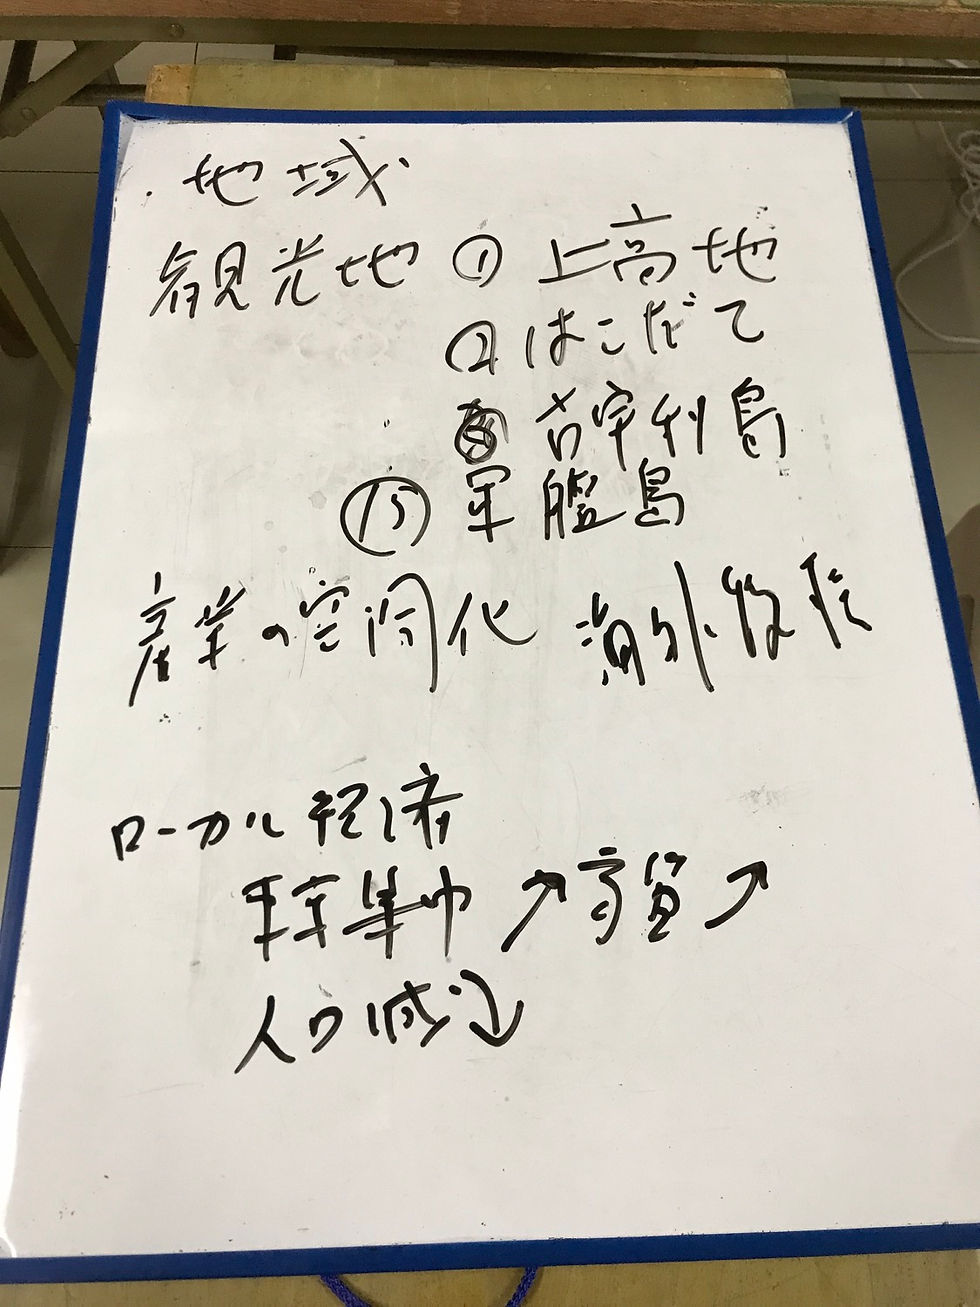 地域
観光地 ① 上高地
② はこだて
③ 古宇利島
⑮ 軍艦島
産業の空洞化 海外移転
ローカル経済
東京集中 ↗ 家賃 ↗
人口減 ↓